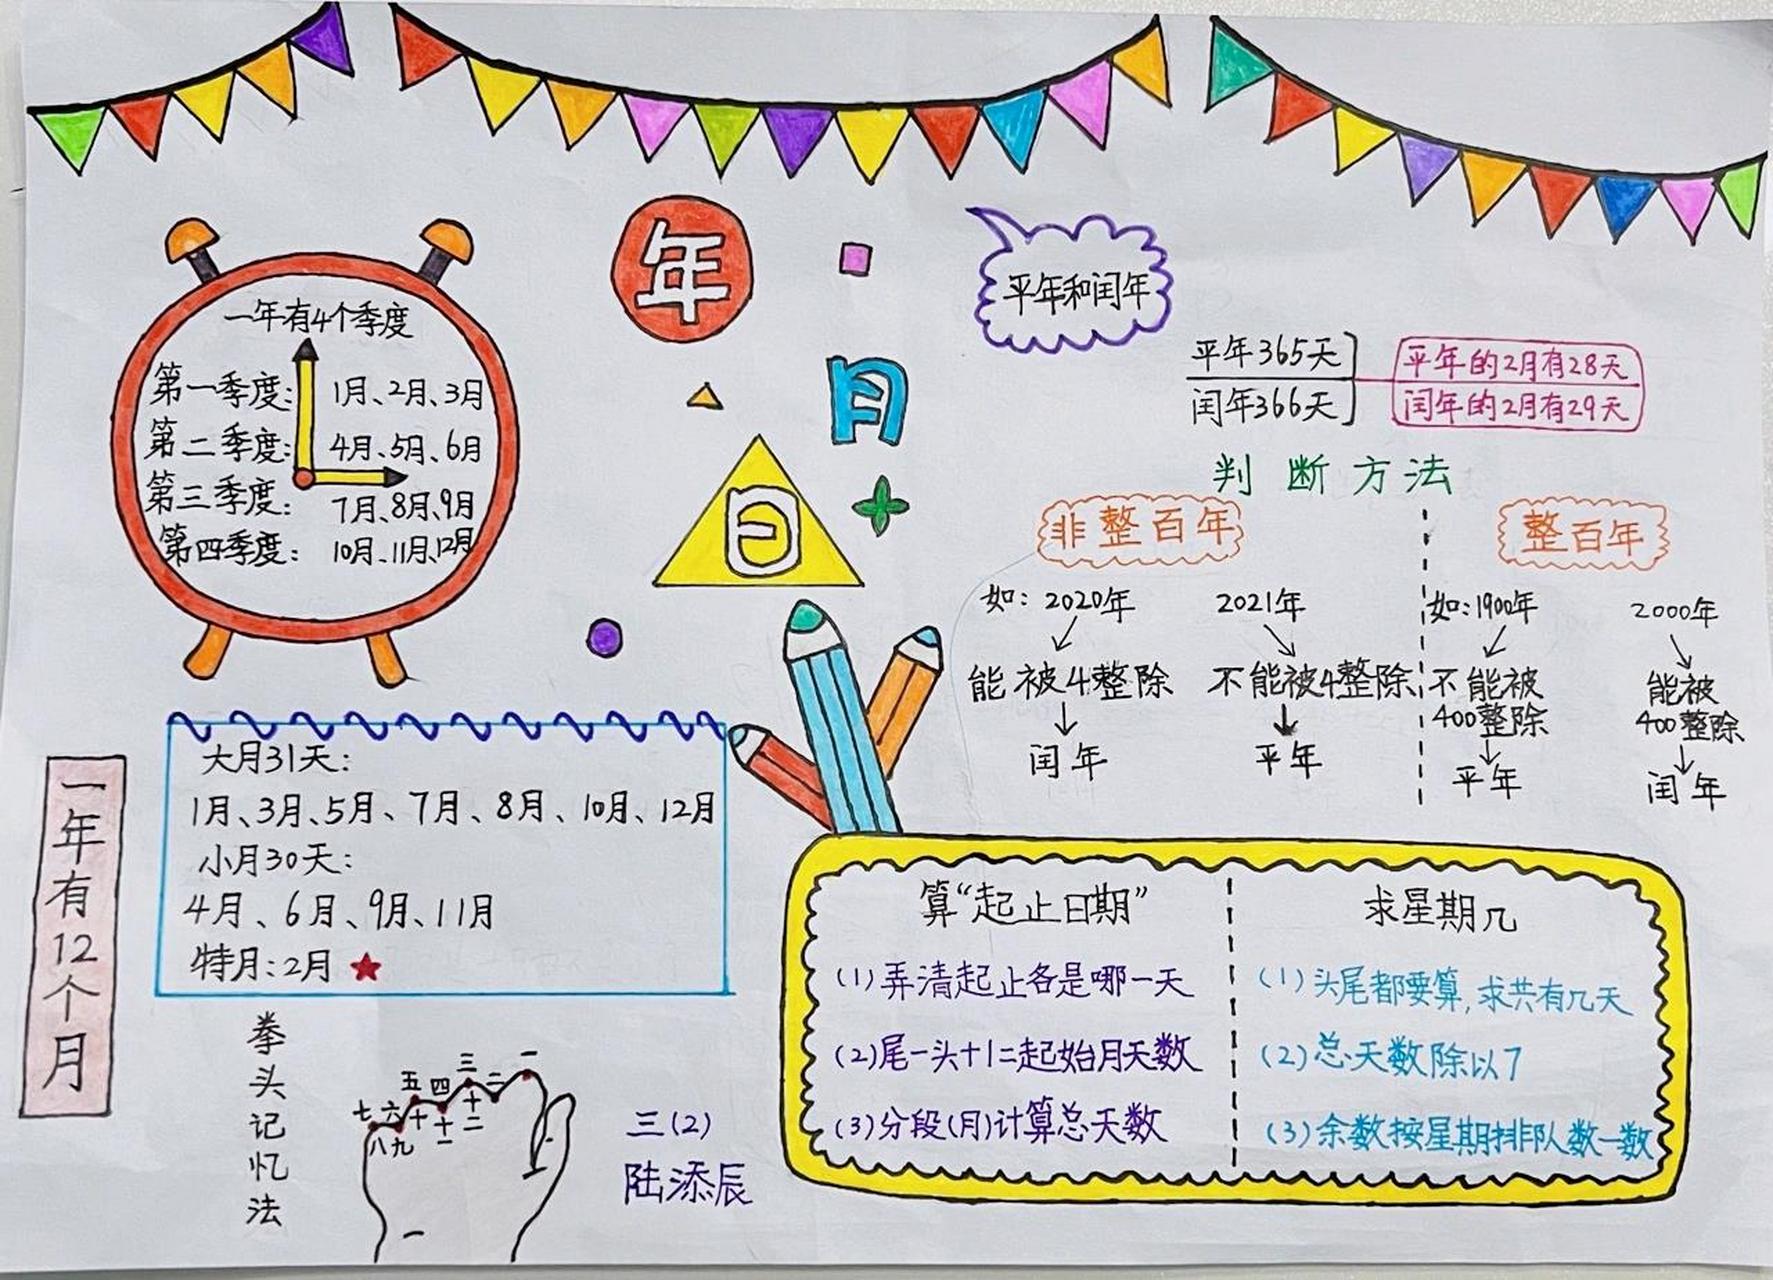 年
月
日
一年有4个季度
第一季度: 1月、2月、3月
第二季度: 4月、5月、6月
第三季度: 7月、8月、9月
第四季度: 10月、11月、12月
平年和闰年
平年365天
闰年366天
平年的2月有28天
闰年的2月有29天
判断方法
非整百年
如: 2020年
能被4整除
闰年
2021年
不能被4整除
平年
整百年
如:1900年
不能被
400整除
平年
2000年
能被
400整除
闰年
一年有12个月
大月31天:
1月、3月、5月、7月、8月、10月、12月
小月30天:
4月、6月、9月、11月
特月:2月
拳头记忆法
一
二
三
四
五
六
七
八
九
十
十一
十二
三(2)
陆添辰
算“起止日期”
(1)弄清起止各是哪一天
(2)尾一头十1二起始月天数
(3)分段(月)计算总天数
求星期几
(1)头尾都要算,求共有几天
(2)总天数除以7
(3)余数按星期排队数一数